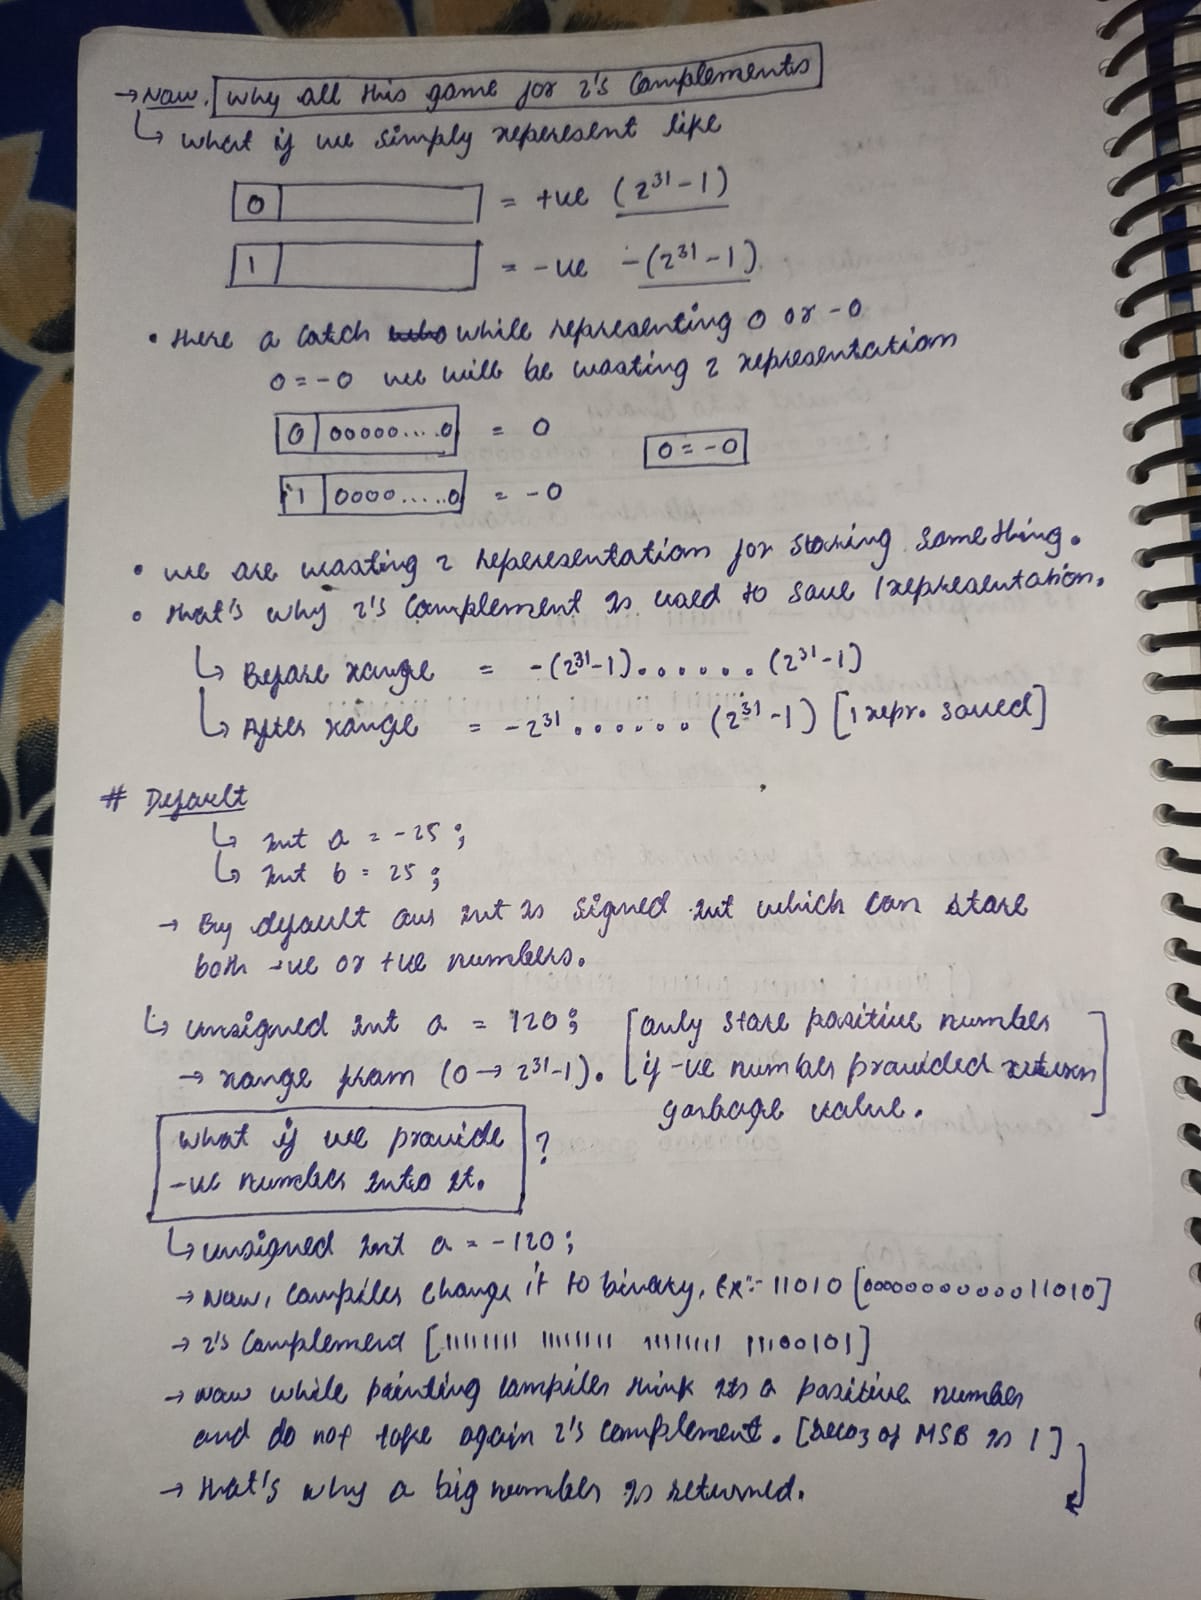 → Now, Why all this game for 2's Complements
↳ what if we simply represent like
0 = +ve (2³¹-1)
1 = -ve -(2³¹-1)
• There a catch while representing 0 or -0
0 = -0 we will be wasting 2 representation
0 00000....0 = 0
0 = -0
1 0000.....0 = -0
• we are wasting 2 representations for storing something.
• that's why 2's complement is used to save 1 representation.
↳ Before range = -(2³¹-1)......(2³¹-1)
↳ After range = -2³¹......(2³¹-1) [1 repr. saved]
# Default
↳ int a = -25;
↳ int b = 25;
→ By default our int is signed int which can store
both -ve or +ve numbers.
↳ unsigned int a = 120; [only store positive number
→ range from (0 → 2³¹-1). if -ve number provided return
garbage value.]
what if we provide
-ve number into it. ?
↳ unsigned int a = -120;
→ Now, compiler change it to binary, Ex:- 11010 [0000000000011010]
→ 2's complement [11111111 11111111 11111111 11100101]
→ now while printing compiler think its a positive number
and do not take again 2's complement. [becoz of MSB is 1]
→ that's why a big number is returned.